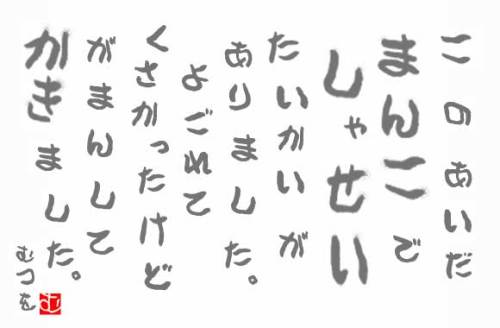 このあいだ
まんこで
しゃせい
たいかいが
ありました。
よごれて
くさかったけど
がまんして
かきました。
むつを
む